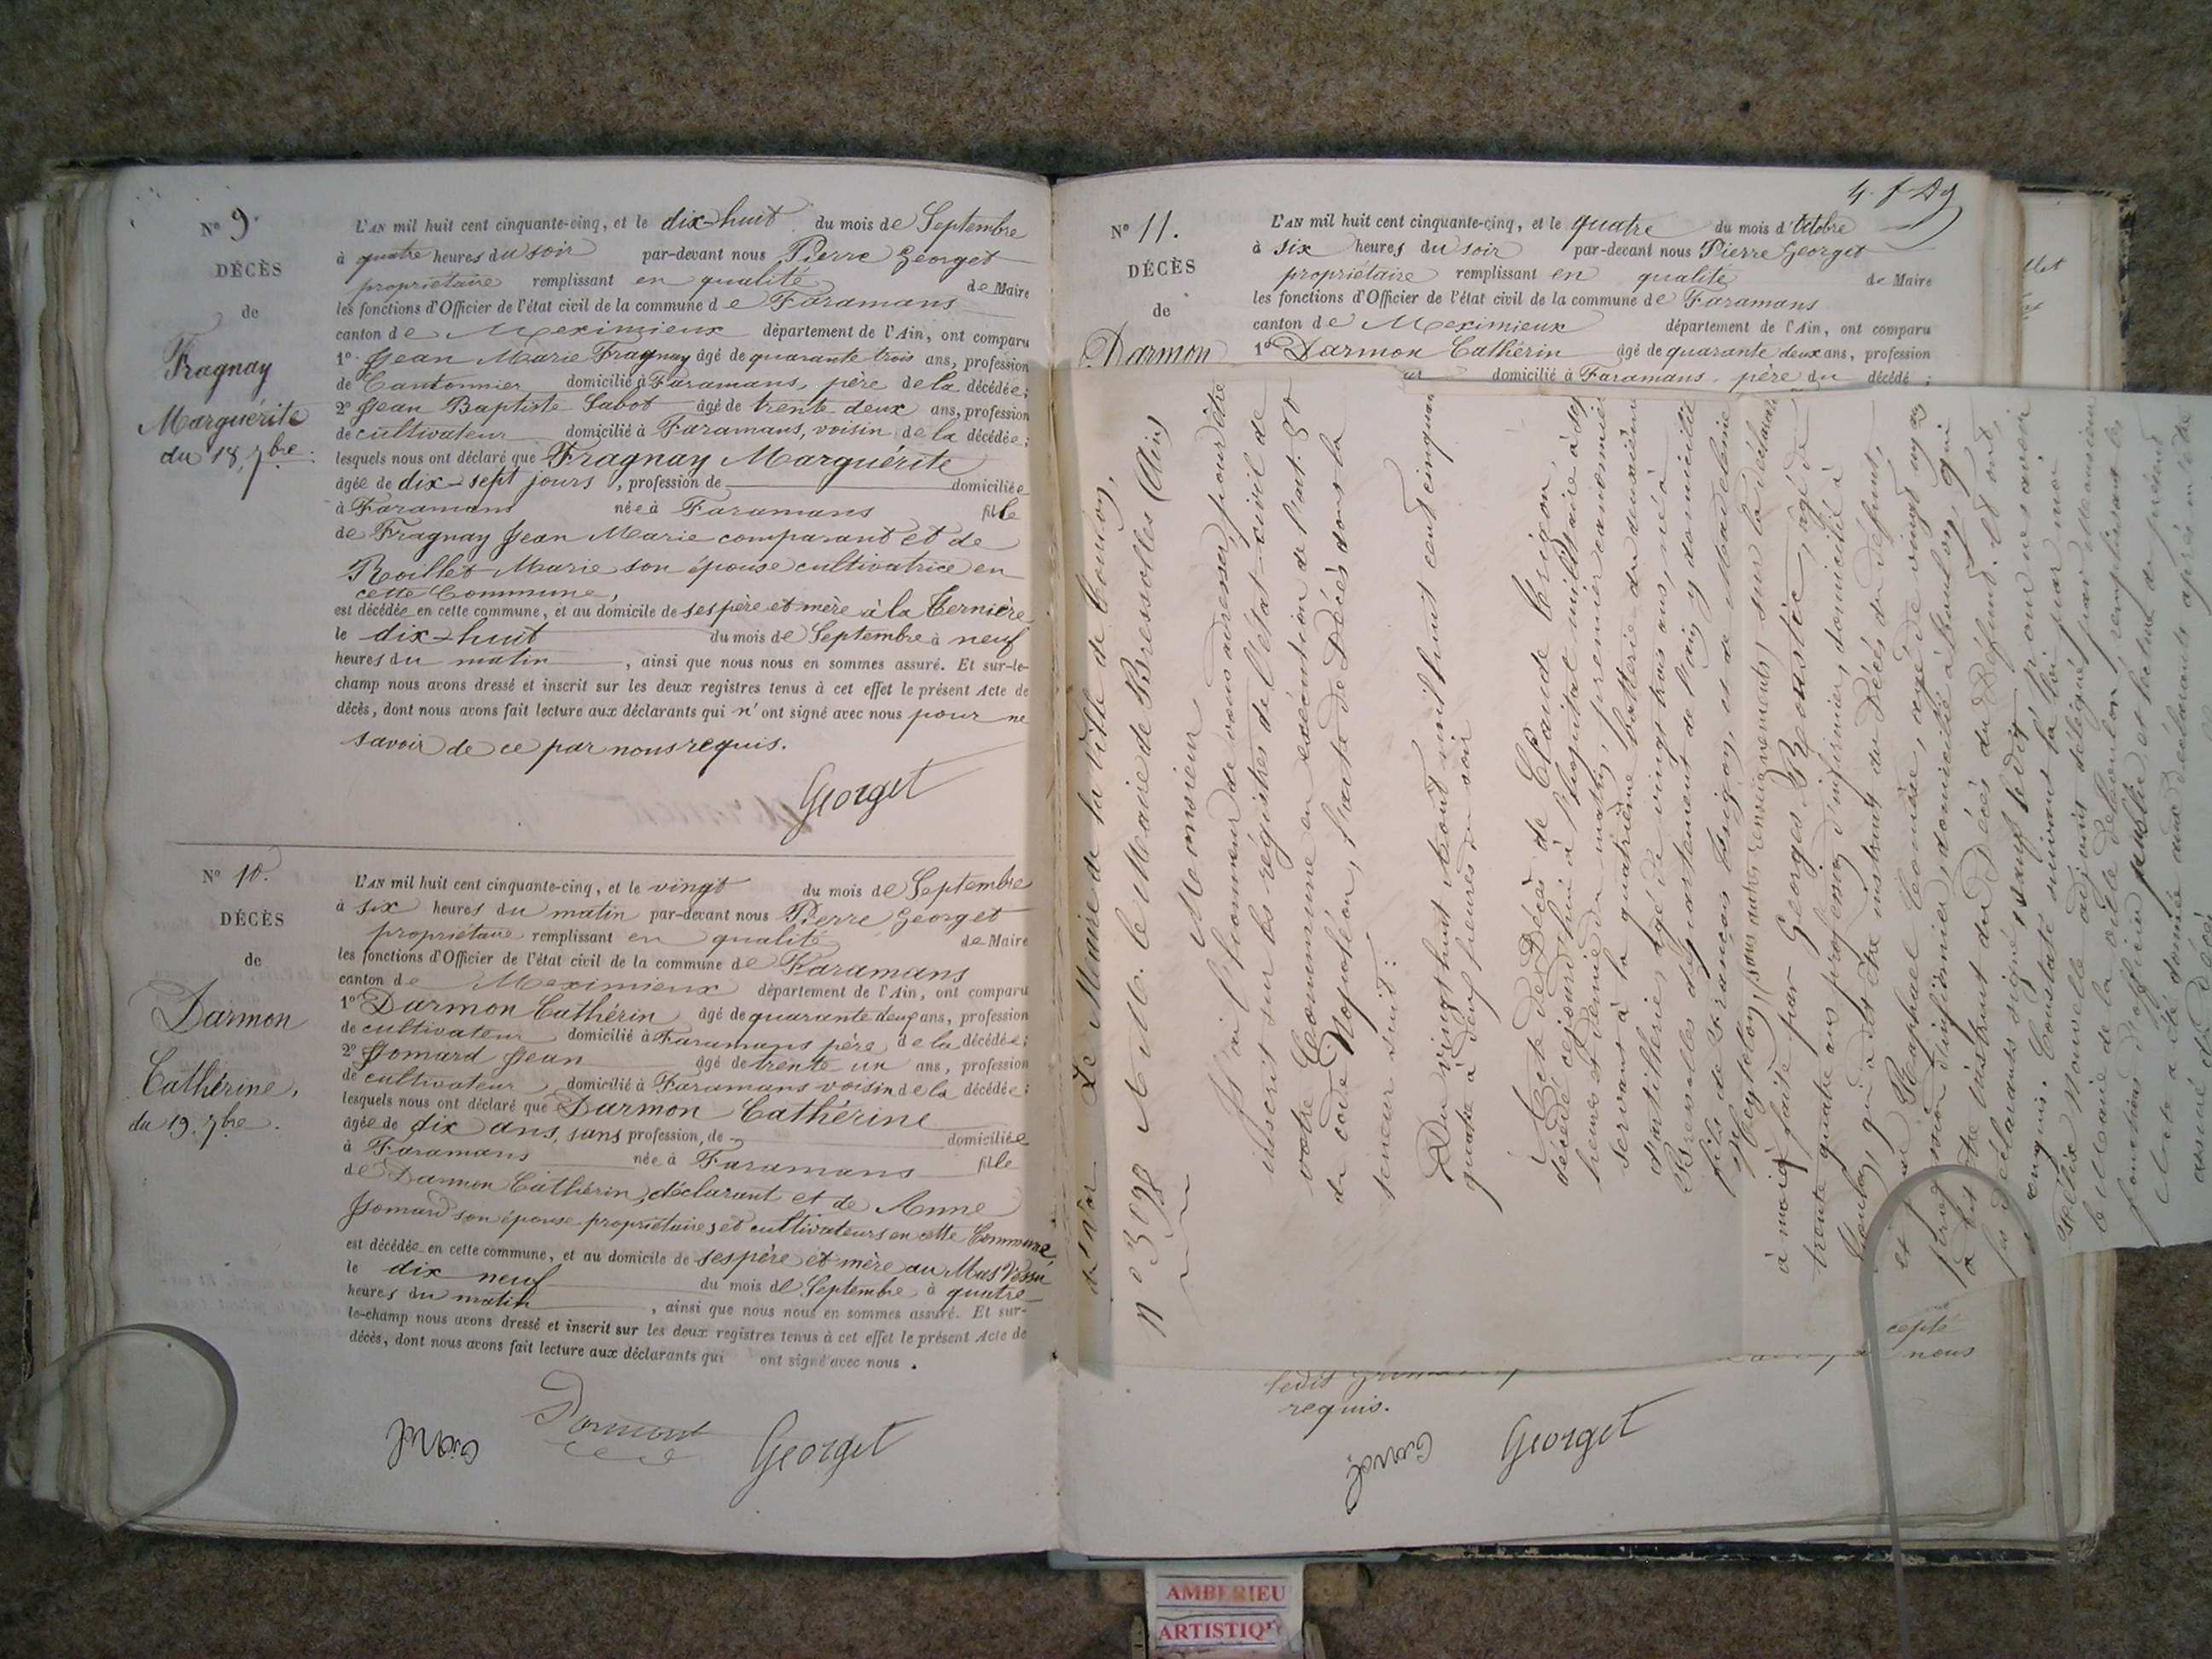 N° 9.
DÉCÈS
de
Fragnay
Marguérite
du 18, 7bre.
L'AN mil huit cent cinquante-cinq, et le dix-huit du mois de Septembre
à quatre heures du soir par-devant nous Pierre Georget
propriétaire remplissant en qualité de Maire
les fonctions d'Officier de l'état civil de la commune de Faramans
canton de Meximieux département de l'Ain, ont comparu
1° Jean Marie Fragnay âgé de quarante trois ans, profession
de Cantonnier domicilié à Faramans, père de la décédée;
2° Jean Baptiste Sabot âgé de trente deux ans, profession
de cultivateur domicilié à Faramans, voisin de la décédée;
lesquels nous ont déclaré que Fragnay Marguérite
âgée de dix-sept jours, profession de domiciliée
à Faramans née à Faramans fille
de Fragnay Jean Marie comparant et de
Roillet Marie son épouse cultivatrice en
cette Commune,
est décédée en cette commune, et au domicile de ses père et mère à la Ternière
le dix-huit du mois de Septembre à neuf
heures du matin, ainsi que nous nous en sommes assuré. Et sur-le-
champ nous avons dressé et inscrit sur les deux registres tenus à cet effet le présent Acte de
décès, dont nous avons fait lecture aux déclarants qui n'ont signé avec nous pour ne
savoir de ce par nous requis.
Georget
N° 10.
DÉCÈS
de
Darmon
Cathérine,
du 19. 7bre.
L'AN mil huit cent cinquante-cinq, et le vingt du mois de Septembre
à six heures du matin par-devant nous Pierre Georget
propriétaire remplissant en qualité de Maire
les fonctions d'Officier de l'état civil de la commune de Faramans
canton de Meximieux département de l'Ain, ont comparu
1° Darmon Cathérin âgé de quarante deux ans, profession
de cultivateur domicilié à Faramans père de la décédée;
2° Jomard Jean âgé de trente un ans, profession
de cultivateur, domicilié à Faramans voisin de la décédée;
lesquels nous ont déclaré que Darmon Cathérine
âgée de dix ans, sans profession, de domiciliée
à Faramans née à Faramans fille
de Darmon Cathérin, déclarant et de Anne
Jomard son épouse propriétaires et cultivateurs en cette Commune
est décédée en cette commune, et au domicile de ses père et mère au Mas
le dix neuf du mois de Septembre à quatre
heures du matin, ainsi que nous nous en sommes assuré. Et sur-
le-champ nous avons dressé et inscrit sur les deux registres tenus à cet effet le présent Acte de
décès, dont nous avons fait lecture aux déclarants qui ont signé avec nous.
Darmon
Georget
N° 11.
DÉCÈS
de
Darmon
L'AN mil huit cent cinquante-cinq, et le quatre du mois d'Octobre
à six heures du soir par-devant nous Pierre Georget
propriétaire remplissant en qualité de Maire
les fonctions d'Officier de l'état civil de la commune de Faramans
canton de Meximieux département de l'Ain, ont comparu
1° Darmon Cathérin âgé de quarante deux ans, profession
domicilié à Faramans, père du décédé;
Le Maire de la Ville de Toulon,
N° 3098 A M. le Maire de Bressolles (Ain)
Monsieur
J'ai l'honneur de vous adresser, pour être
inscrit sur les régistres de l'état-civil de
votre Commune en exécution de l'art. 80
du code Napoléon, l'acte de Décès dont la
teneur suit:
Du vingt huit Août mil huit cent cinquante
quatre à neuf heures du soir
Acte de Décès de Claude
décédé aujourd'hui à l'hopital militaire à
heures et demie du matin, premier canonnier
servant à la quatrième batterie du deuxième
d'artillerie, agé de vingt trois ans, né à
Bressolles département de l'ain y domicilié
fils de François et de Madeleine
(sans autres renseignements) sur la déclaration
à moi faite par Georges agé de
trente quatre ans profession d'infirmier, domicilié à
Toulon, qui a dit être instruit du Décès du défunt,
et par Raphael agé de vingt
profession d'infirmier, domicilié à Toulon, qui
a dit être instruit du Décès du Défunt. Et ont
les déclarants signé, sauf ledit pour ne savoir
requis. Constaté suivant la loi par moi
Félix Nouvelle adjoint délégué par Monsieur
le Maire de la ville de Toulon, remplissant les
fonctions d'officier public, et lecture du présent
acte a été donnée aux déclarants après m'être
assuré du Décès
cepté
nous
requis.
Georget
AMBERIEU
ARTISTIQ